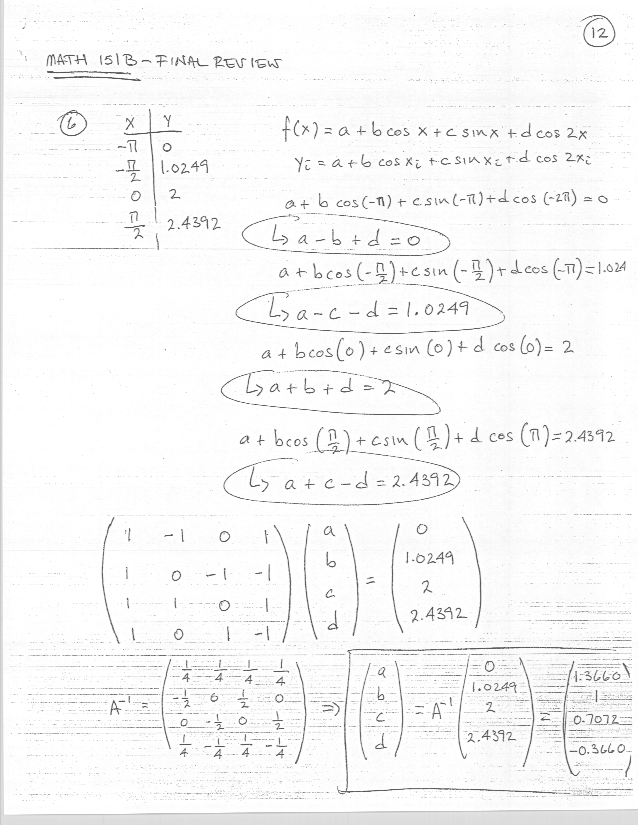 12
MATH 151B - FINAL REVIEW
6
X Y
-π 0
-π/2 1.0249
0 2
π/2 2.4392
f(x) = a + b cos x + c sin x + d cos 2x
Yi = a + b cos xi + c sin xi + d cos 2xi
a + b cos(-π) + c sin(-π) + d cos(-2π) = 0
↳ a - b + d = 0
a + b cos(-π/2) + c sin(-π/2) + d cos(-π) = 1.024
↳ a - c - d = 1.0249
a + b cos(0) + c sin(0) + d cos(0) = 2
↳ a + b + d = 2
a + b cos(π/2) + c sin(π/2) + d cos(π) = 2.4392
↳ a + c - d = 2.4392
1 -1 0 1 a 0
1 0 -1 -1 b 1.0249
1 1 0 1 c = 2
1 0 1 -1 d 2.4392
1/4 1/4 1/4 1/4 a 0 1.3660
A⁻¹ = -1/2 0 1/2 0 ⇒ b = A⁻¹ 1.0249 = 1
0 -1/2 0 1/2 c 2 0.7072
1/4 -1/4 1/4 -1/4 d 2.4392 -0.3660